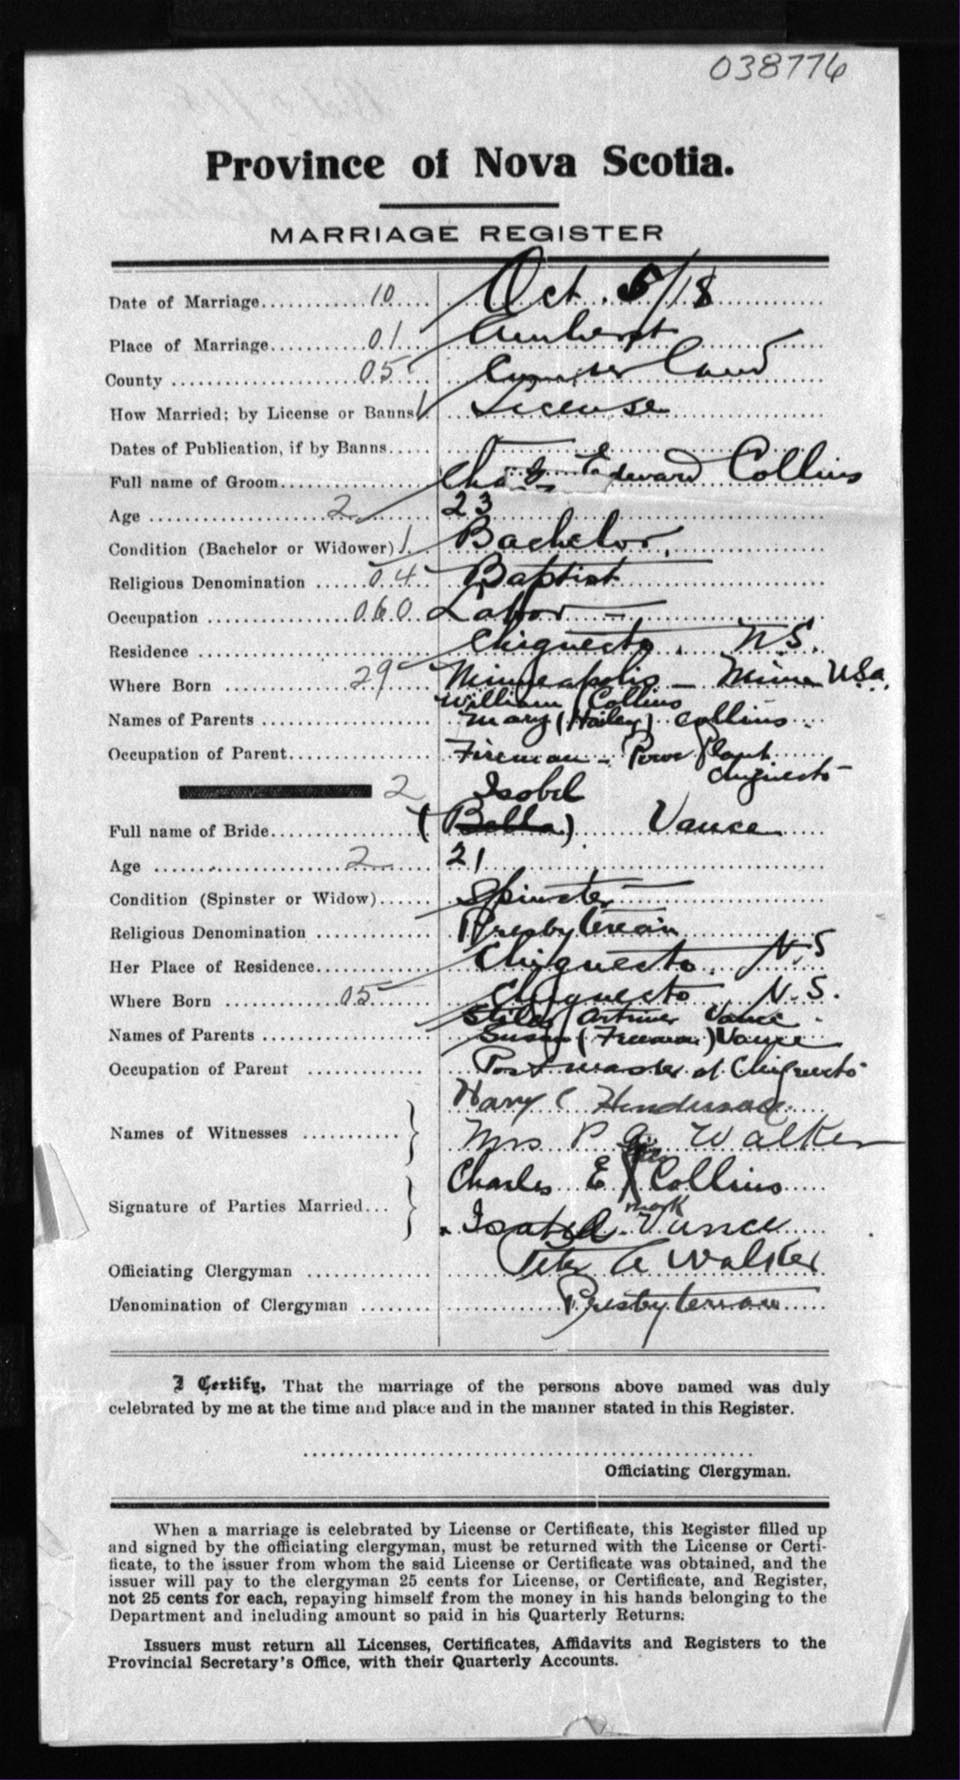 038776
Province of Nova Scotia.
MARRIAGE REGISTER
Date of Marriage 10 Oct. 5/18
Place of Marriage 01 Amherst
County 05 Cumberland
How Married; by License or Banns 1 License
Dates of Publication, if by Banns
Full name of Groom Edward Collins
Age 2 23
Condition (Bachelor or Widower) 1 Bachelor.
Religious Denomination 04 Baptist
Occupation 060 Labor -
Residence Chignecto. N.S.
Where Born 29 Minneapolis - Minn USA.
William Collins
Names of Parents Mary (Hailey) Collins.
Occupation of Parent Fireman - Power Plant
Chignecto
2 Isobel
Full name of Bride (Bella) Vance
Age 2 21
Condition (Spinster or Widow) Spinster
Religious Denomination Presbyterian
Her Place of Residence Chignecto. N.S
Where Born 05 Chignecto N.S.
Vance
Names of Parents Susan (Freeman) Vance
Occupation of Parent Postmaster at Chignecto
Harry C Henderson
Names of Witnesses } Mrs P A Walker
his
Charles E X Collins
mark
Signature of Parties Married } Isabel Vance
Officiating Clergyman Peter A Walker
Denomination of Clergyman Presbyterian
I Certify, That the marriage of the persons above named was duly
celebrated by me at the time and place and in the manner stated in this Register.
Officiating Clergyman.
When a marriage is celebrated by License or Certificate, this Register filled up
and signed by the officiating clergyman, must be returned with the License or Certi-
ficate, to the issuer from whom the said License or Certificate was obtained, and the
issuer will pay to the clergyman 25 cents for License, or Certificate, and Register,
not 25 cents for each, repaying himself from the money in his hands belonging to the
Department and including amount so paid in his Quarterly Returns.
Issuers must return all Licenses, Certificates, Affidavits and Registers to the
Provincial Secretary's Office, with their Quarterly Accounts.